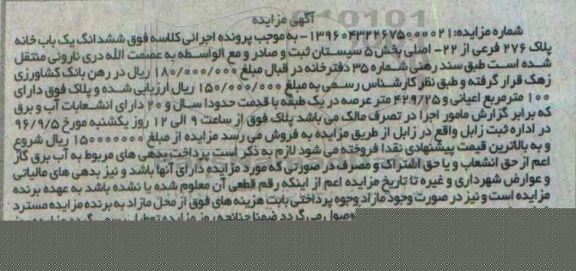 آگهی مزایده
شماره مزایده:۱۳۹۶۰۴۳۲۲۶۷۵۰۰۰۰۲۱- به موجب پرونده اجرائی کلاسه فوق ششدانگ یک باب خانه
پلاک ۲۷۶ فرعی از ۲۲- اصلی بخش ۵ سیستان ثبت و صادر و مع الواسطه به عصمت الله دری نارونی منتقل
شده است طبق سند رهنی شماره ۳۵ دفترخانه در قبال مبلغ ۱۸۰/۰۰۰/۰۰۰ ریال در رهن بانک کشاورزی
زهک قرار گرفته و طبق نظر کارشناس رسمی به مبلغ ۱۵۰/۰۰۰/۰۰۰ ریال ارزیابی شده و پلاک فوق دارای
۱۰۰ مترمربع اعیانی و ۴۲۹/۲۵ متر عرصه در یک طبقه با قدمت حدودا سال و ۲۰ دارای انشعابات آب و برق
که برابر گزارش مامور اجرا در تصرف مالک می باشد پلاک فوق از ساعت ۹ الی ۱۲ روز یکشنبه مورخ ۹۶/۹/۵
در اداره ثبت زابل واقع در زابل از طریق مزایده به فروش می رسد مزایده از مبلغ ۱۵۰۰۰۰۰۰۰ ریال شروع
و به بالاترین قیمت پیشنهادی نقدا فروخته می شود لازم به ذکر است پرداخت بدهی های مربوط به آب برق گاز
اعم از حق انشعاب و یا حق اشتراک و مصرف در صورتی که مورد مزایده دارای آنها باشد و نیز بدهی های مالیاتی
و عوارض شهرداری و غیره تا تاریخ مزایده اعم از اینکه رقم قطعی آن معلوم شده یا نشده باشد به عهده برنده
مزایده است و نیز در صورت وجود مازاد وجوه پرداختی بابت هزینه های فوق از محل مازاد به برنده مزایده مسترد
وصول می گردد ضمنا چنانچه روز مزایده تعطیل رسمی گردد